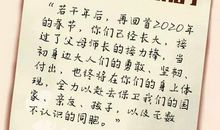 “若干年后，再回首2020年
的春节，你们已经长大，接
过了父母师长的接力棒，当
初身边大人们的勇敢、坚韧、
付出，也终将在你们的身上体
现，全力以赴去保卫我们的国
家、亲友、孩子，以及无数
不认识的同胞。”